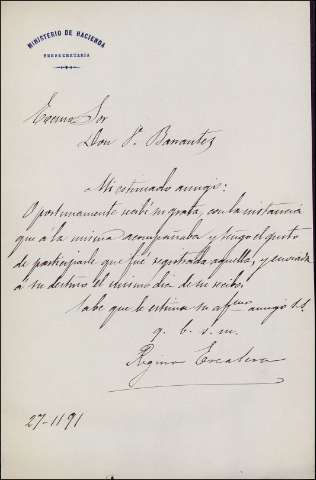 MINISTERIO DE HACIENDA
SUBSECRETARÍA
Excmo Sor
Don V. Barrantes
Mi estimado amigo:
Oportunamente recibí su grata, con la instancia
que á la misma acompañaba y tengo el gusto
de participarle que fué registrada aquella, y enviada
á su destino el mismo dia de su recibo.
Sabe que le estima su affmo amigo s.s.
q. b. s. m.
Regino Escalera
27-11 91